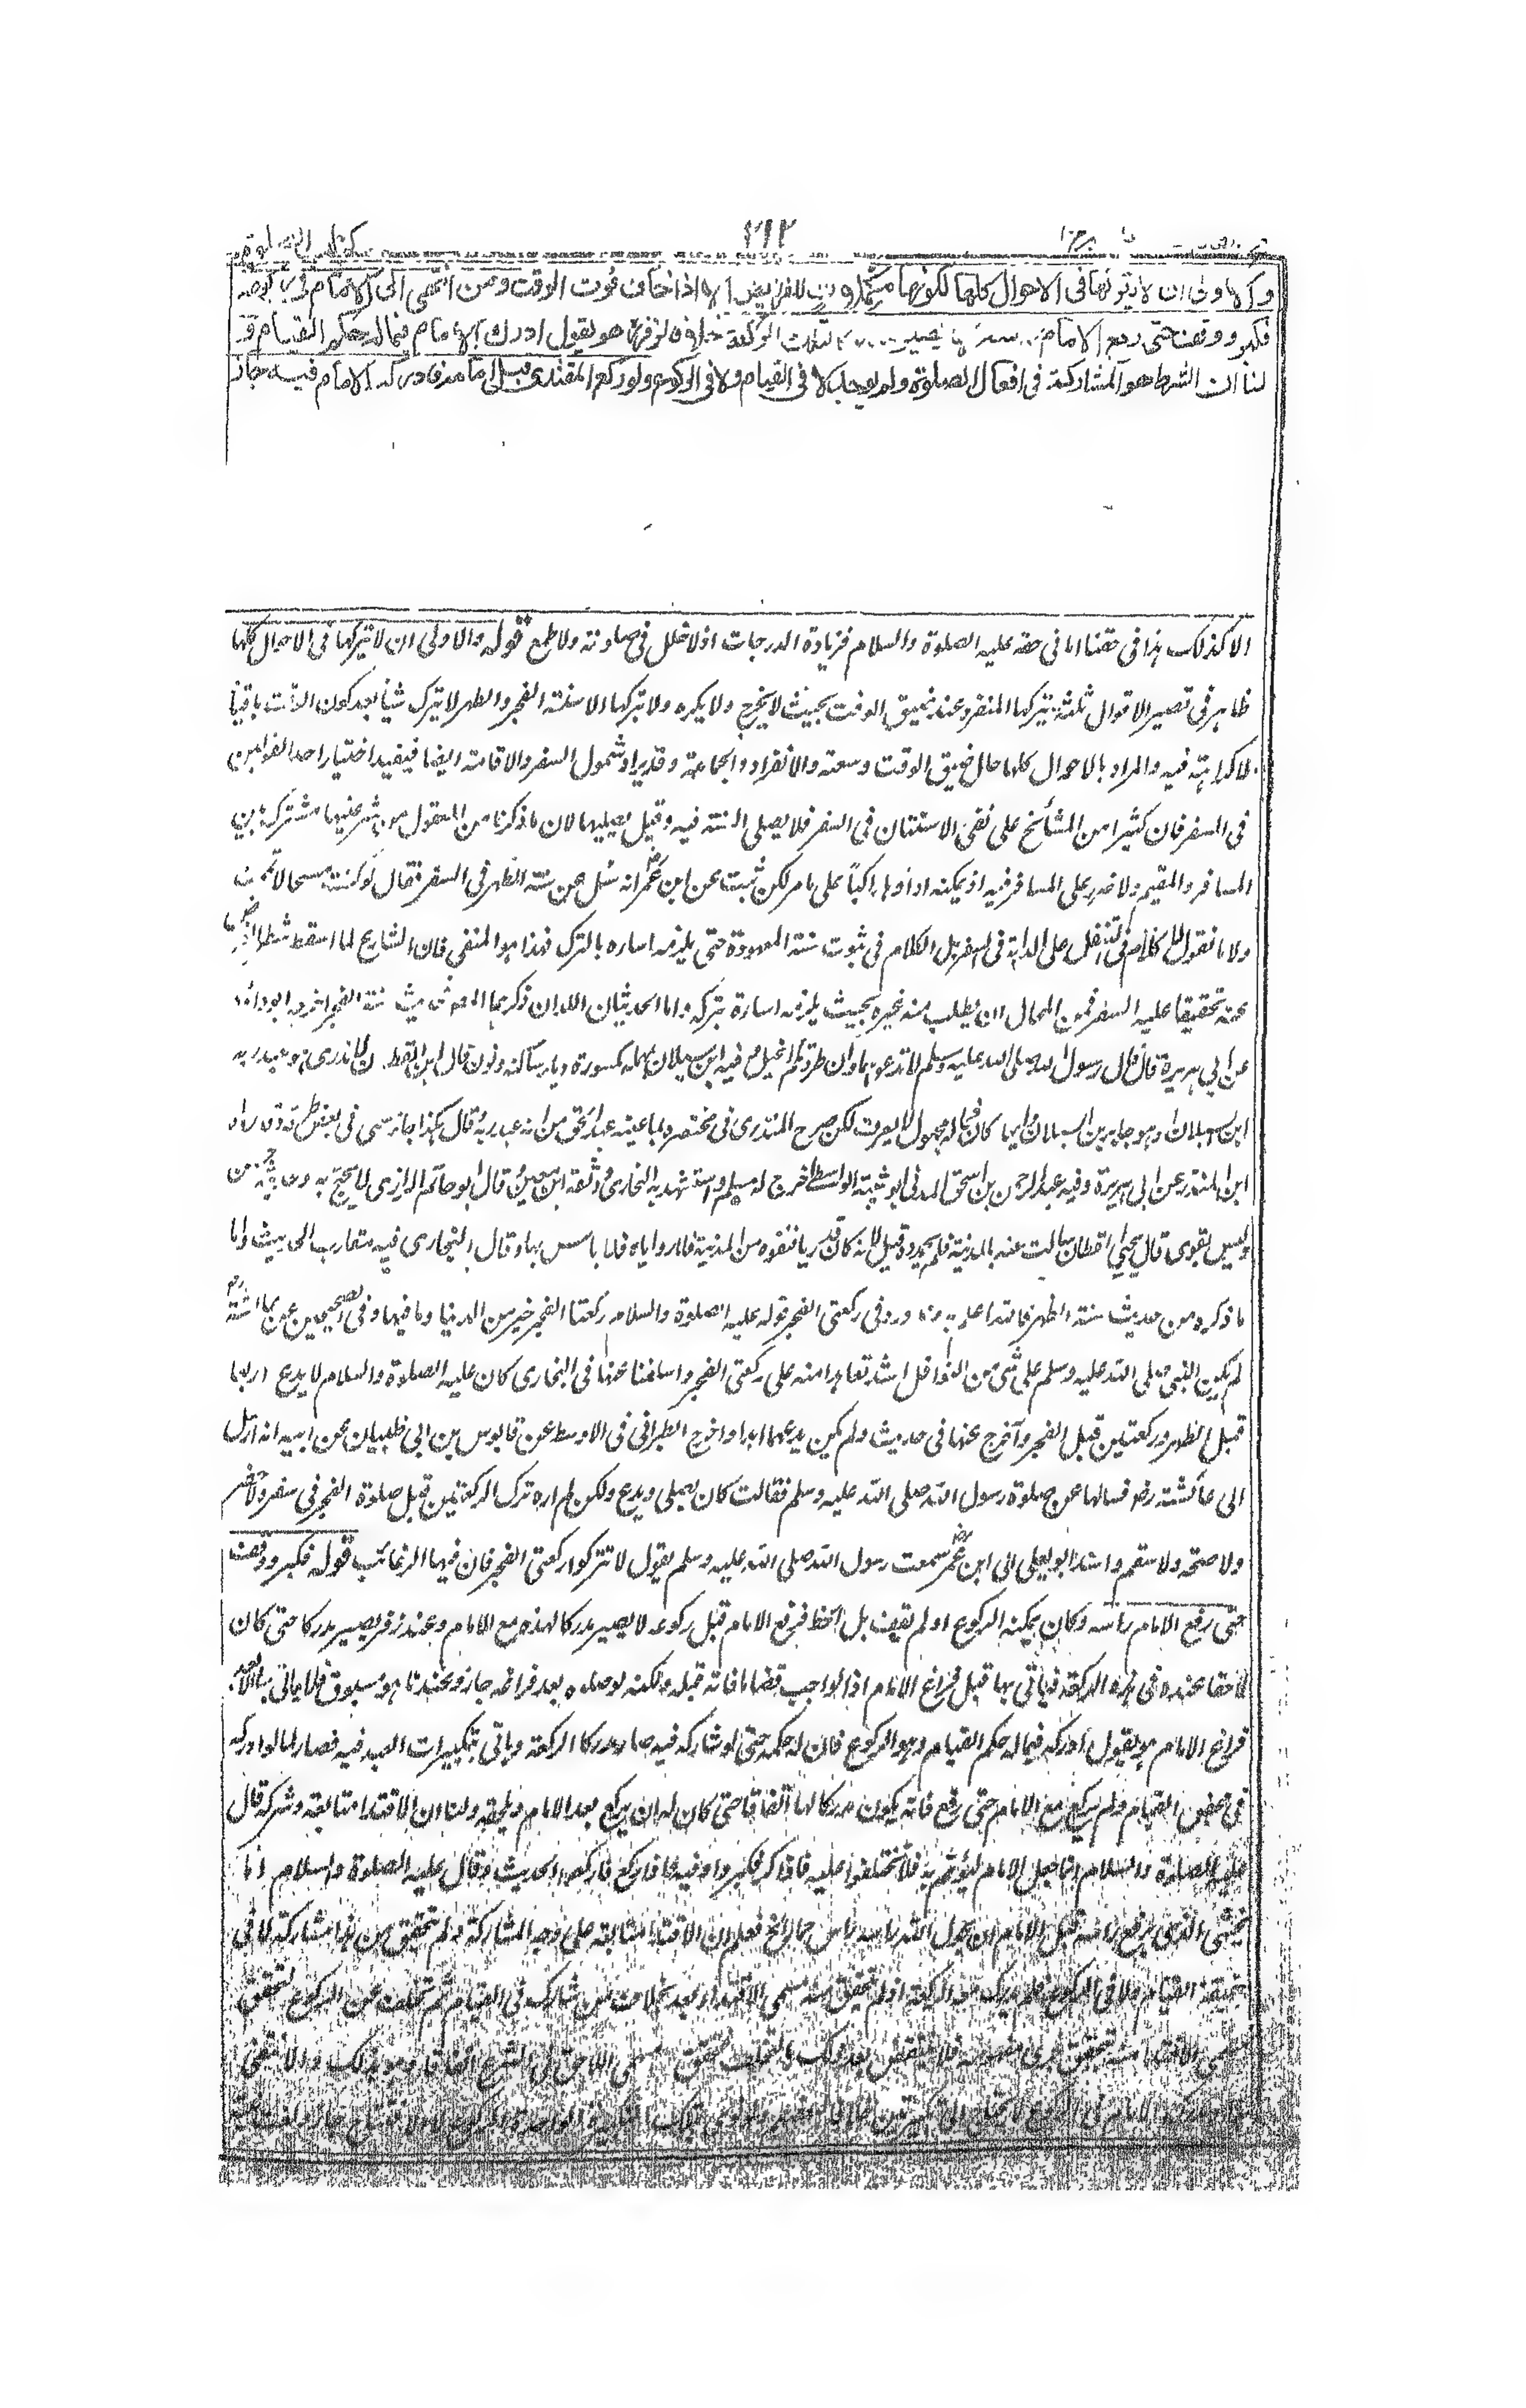 فتح القدير ج ا
٢١٢
كتاب الصلوة
والاولى ان لا يتركها فى الاحوال كلها لكونها مكملات للفرائض الا اذا خاف فوت الوقت ومن انتهى الى الامام فى ركوعه
فكبر ووقف حتى رفع الامام راسه لا يصير مدركا لتلك الركعة خلافا لزفر هو يقول ادرك الامام فيما له حكم القيام
لنا ان الشرط هو المشاركة فى افعال الصلوة ولم يوجد لا فى القيام ولا فى الركوع ولو ركع المقتدى قبل امامه فادركه الامام فيه جاز
الا كذلك هذا فى حقنا اما فى حقه عليه الصلوة والسلام فزيادة الدرجات اذ لا خلل فى صلوته ولا طمع قوله والاولى ان لا يتركها فى الاحوال كلها
ظاهر فى تصيير الاقوال ثلثة يتركها المنفرد عند ضيق الوقت بحيث لا يخرج ولا يكره ولا تتركها الا سنة الفجر والظهر لا يترك شيئا بعد كون الوقت باقيا
لا كراهة فيه والمراد بالاحوال كلها حال ضيق الوقت وسعته والانفراد والجماعة وقد يراد شمول السفر والاقامة ايضا فيفيد اختيار احد القولين
فى السفر فان كثيرا من المشائخ على نفى الاستنان فى السفر فلا يصلى السنة فيه وقيل يصليها لان ما ذكرنا من المعقول من شرعيتها مشترك بين
المسافر والمقيم ولا ضرر على المسافر فيه اذ يمكنه اداؤها راكبا على ما مر لكن ثبت عن ابن عمر انه سئل عن سنة الظهر فى السفر فقال لو كنت مسبحا لاتممت
ولانا نقول الكلام فى التنفل على الدابة فى السفر بل الكلام فى ثبوت سنة المعهودة حتى يلزمه اساءة بالترك فهذا هو المنفى فان الشارع لما اسقط شطر الفرض
عنه تحقيقا عليه السفر فمن المحال ان يطلب منه غيره بحيث يلزمه اساءة بتركه واما الحديثان اللذان ذكرهما المص حديث سنة الفجر اخرجه ابو داؤد
عن ابى هريرة قال قال رسول الله صلى الله عليه وسلم لا تدعوهما وان طردتكم الخيل م فيه ابن سيلان بمهملة مكسورة وياء ساكنة ونون قال ابن القطان لا ندرى اهو عبد ربه
ابن سيلان او هو جابر بن سيلان وايهما كان فحاله مجهول لا يعرف لكن صرح المنذرى فى مختصره بما عينه عبد الحق من انه عبد ربه قال هكذا جاء مسمى فى بعض طرقه وقد رواه
ابن المنذر عن ابى هريرة وفيه عبد الرحمن بن اسحق المدنى ابو شيبة الواسطى اخرج له مسلم واستشهد به البخارى ووثقه ابن معين وقال ابو حاتم الرازى لا يحتج به وهو حسن
وليس بقوى قال يحيى القطان سالت عنه بالمدينة فلم يحمدوه قيل لانه كان قدريا فنفوه من المدينة فاما رواياته فلا باس بها وقال البخارى فيه مقارب الحديث واما
ما ذكره من حديث سنة الظهر فالله اعلم به ومما ورد فى ركعتى الفجر قوله عليه الصلوة والسلام ركعتا الفجر خير من الدنيا وما فيها وفى الصحيحين عن عائشة رض
لم يكن النبى صلى الله عليه وسلم على شئ من النوافل اشد تعاهدا منه على ركعتى الفجر واسلفنا عنها فى البخارى كان عليه الصلوة والسلام لا يدع اربعا
قبل الظهر وركعتين قبل الفجر وآخرج عنها فى حديث ولم يكن يدعهما ابدا واخرج الطبرانى فى الاوسط عن قابوس بن ابى ظبيان عن ابيه انه ارسل
الى عائشة رض فسالها عن صلوة رسول الله صلى الله عليه وسلم فقالت كان يصلى ويدع ولكن لم اره ترك الركعتين قبل صلوة الفجر فى سفر ولا حضر
ولا صحة ولا سقم واسند ابو يعلى الى ابن عمر سمعت رسول الله صلى الله عليه وسلم يقول لا تتركوا ركعتى الفجر فان فيها الرغائب قوله فكبر ووقف
حتى رفع الامام راسه وكان يمكنه الركوع او لم يقف بل انحط فرفع الامام قبل ركوعه لا يصير مدركا لهذه مع الامام وعند زفر يصير مدركا حتى كان
لاحقا عنده فى هذه الركعة فياتى بها قبل فراغ الامام اذ الواجب قضاء ما فاته قبله ولكنه لو صلاه بعد فراغه جاز وعندنا هو مسبوق فلا ياتى بها الا بعد
فراغ الامام هو يقول ادركه فيما له حكم القيام وهو الركوع فان له حكمه حتى لو شاركه فيه صار مدركا الركعة وياتى بتكبيرات العيد فيه فصار كما لو ادركه
فى محض القيام ولم يركع مع الامام حتى رفع فانه يكون مدركا لها اتفاقا حتى كان له ان يركع بعد الامام ويلحقه ولنا ان الاقتداء متابعة وشركة قال
عليه الصلوة والسلام انما جعل الامام ليؤتم به فلا تختلفوا عليه فاذا كبر فكبروا وفيه فاذا ركع فاركعوا الحديث وقال عليه الصلوة والسلام اما
يخشى الذى يرفع راسه قبل الامام ان يحول الله راسه راس حمار الخ فعلم ان الاقتداء متابعة على وجه المشاركة ولم تتحقق من هذا مشاركة لا فى
حقيقة القيام ولا فى الركوع فلم يدرك معه الركعة اذ لم يتحقق منه مسمى الاقتداء بعد بخلاف من شارك فى القيام ثم تخلف عن الركوع لتحقق
مسمى الاقتداء منه